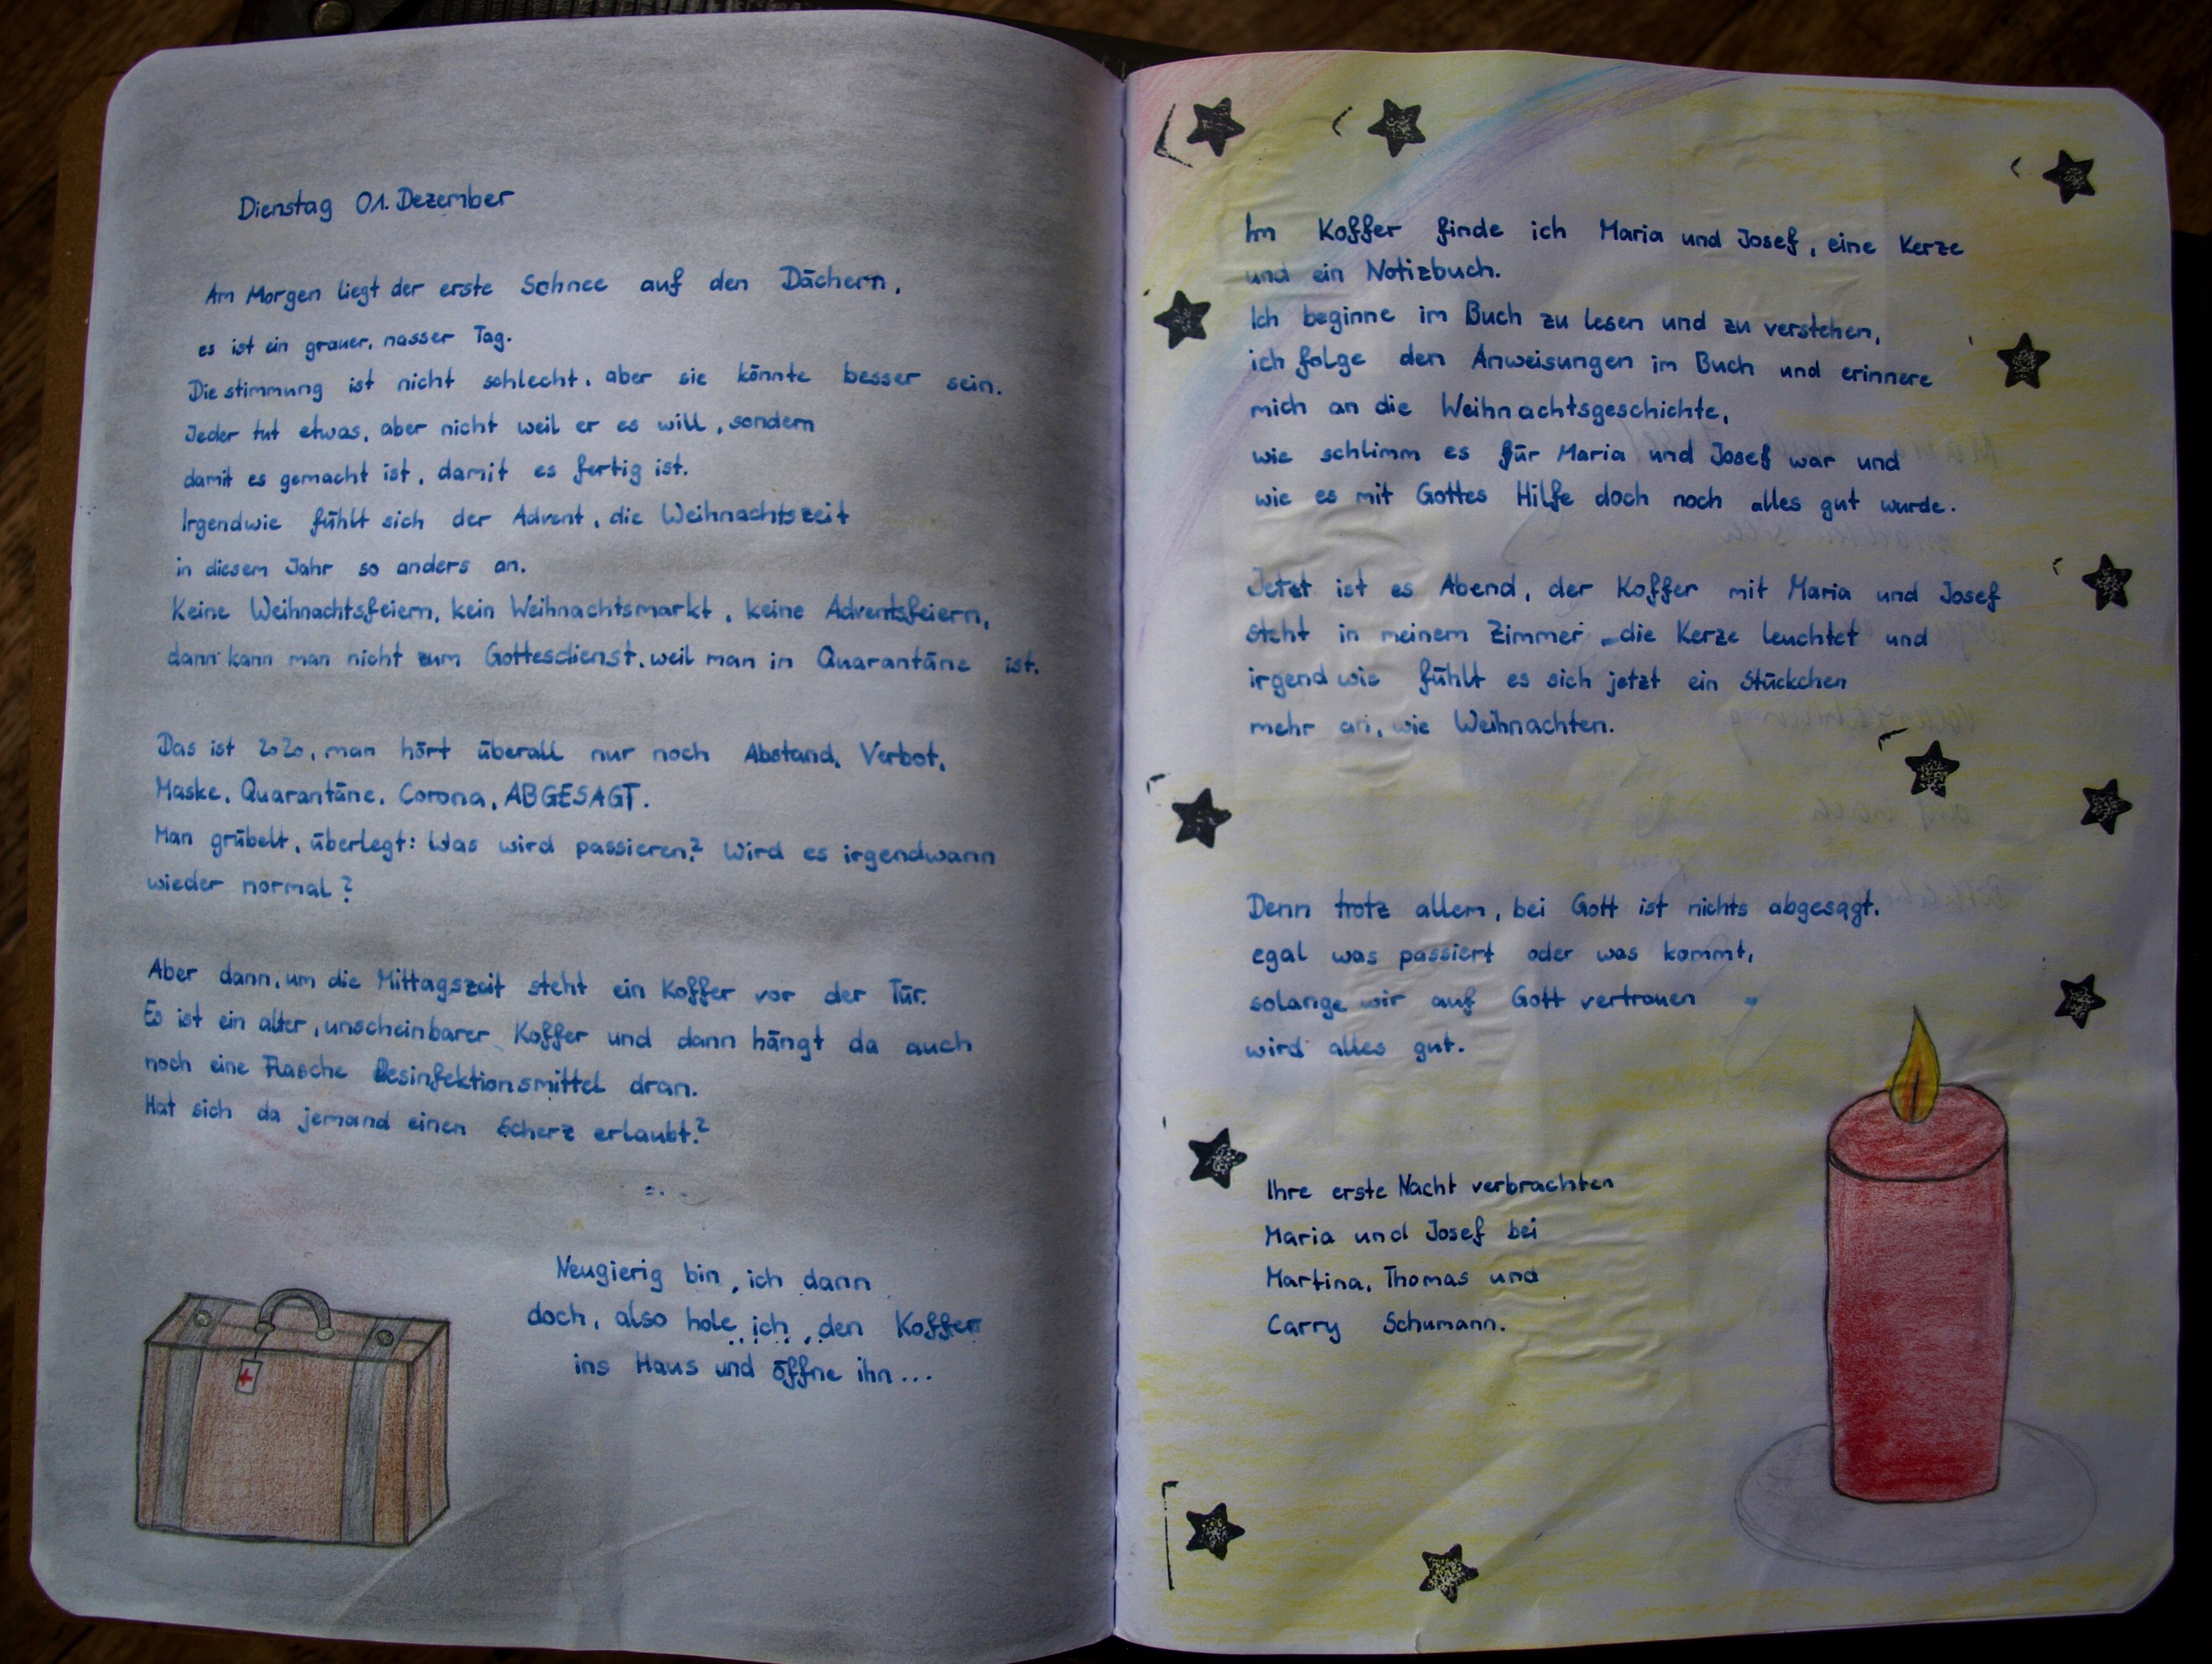 Dienstag 01. Dezember
Am Morgen liegt der erste Schnee auf den Dächern,
es ist ein grauer, nasser Tag.
Die stimmung ist nicht schlecht, aber sie könnte besser sein.
Jeder tut etwas, aber nicht weil er es will, sondern
damit es gemacht ist, damit es fertig ist.
Irgendwie fühlt sich der Advent, die Weihnachtszeit
in diesem Jahr so anders an.
Keine Weihnachtsfeiern, kein Weihnachtsmarkt, keine Adventsfeiern,
dann kann man nicht zum Gottesdienst, weil man in Quarantäne ist.
Das ist 2020, man hört überall nur noch Abstand, Verbot,
Maske, Quarantäne, Corona, ABGESAGT.
Man grübelt, überlegt: Was wird passieren? Wird es irgendwann
wieder normal?
Aber dann, um die Mittagszeit steht ein Koffer vor der Tür.
Es ist ein alter, unscheinbarer Koffer und dann hängt da auch
noch eine Flasche Desinfektionsmittel dran.
Hat sich da jemand einen Scherz erlaubt?
Neugierig bin, ich dann
doch, also hole ich den Koffer
ins Haus und öffne ihn...
Im Koffer finde ich Maria und Josef, eine Kerze
und ein Notizbuch.
Ich beginne im Buch zu lesen und zu verstehen,
ich folge den Anweisungen im Buch und erinnere
mich an die Weihnachtsgeschichte,
wie schlimm es für Maria und Josef war und
wie es mit Gottes Hilfe doch noch alles gut wurde.
Jetzt ist es Abend, der Koffer mit Maria und Josef
steht in meinem Zimmer, die Kerze leuchtet und
irgendwie fühlt es sich jetzt ein Stückchen
mehr an, wie Weihnachten.
Denn trotz allem, bei Gott ist nichts abgesagt.
egal was passiert oder was kommt,
solange wir auf Gott vertrauen
wird alles gut.
Ihre erste Nacht verbrachten
Maria und Josef bei
Martina, Thomas und
Carry Schumann.